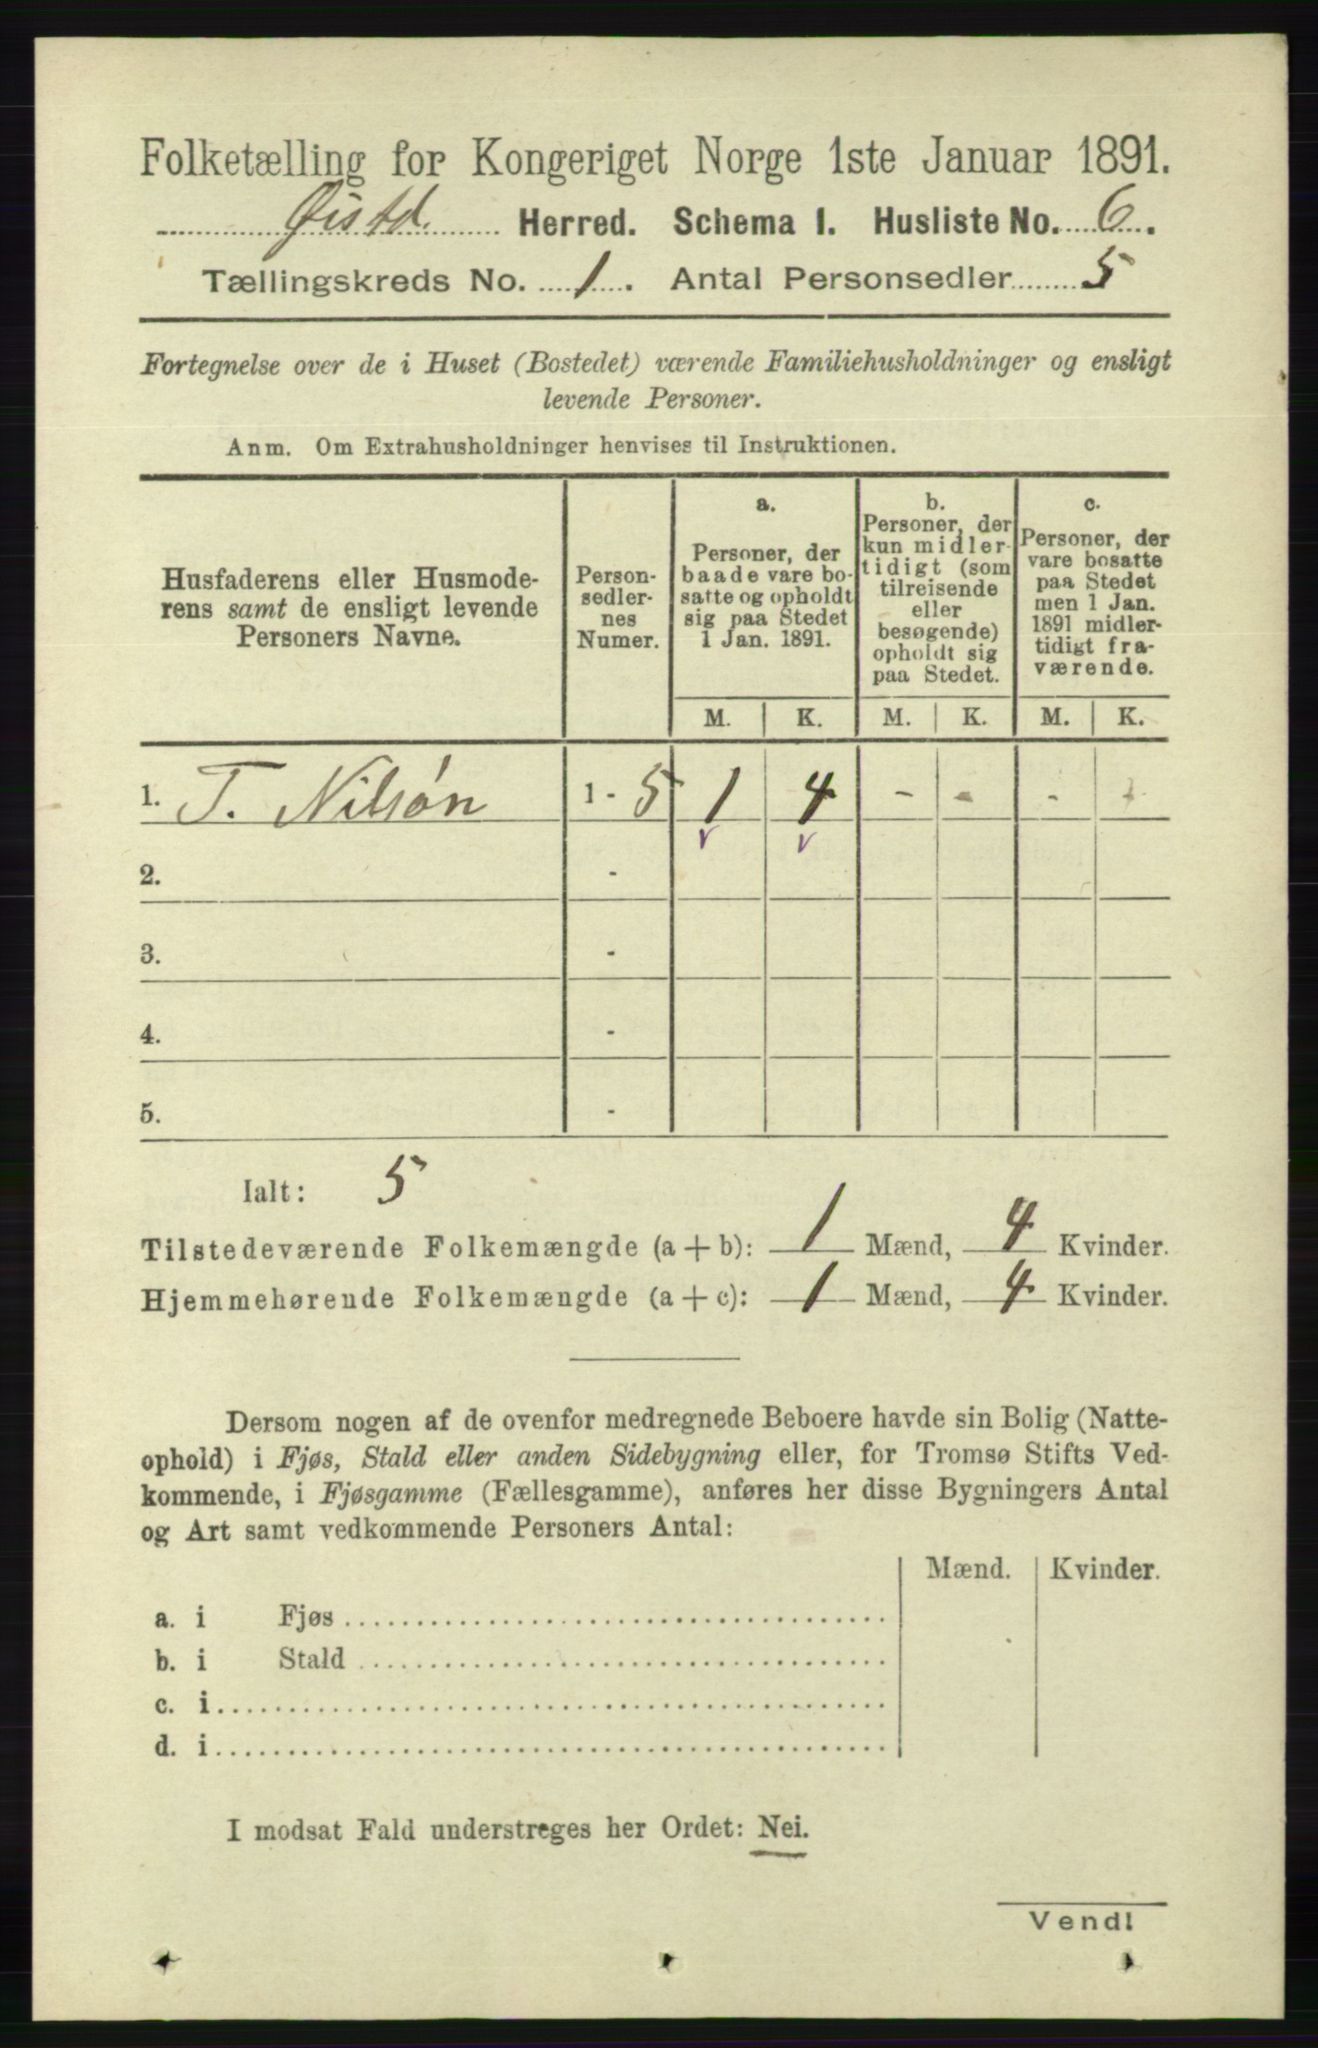 Folketælling for Kongeriget Norge 1ste Januar 1891.
Øistd. Herred. Schema I. Husliste No. 6.
Tællingskreds No. 1. Antal Personsedler 5
Fortegnelse over de i Huset (Bostedet) værende Familiehusholdninger og ensligt
levende Personer.
Anm. Om Extrahusholdninger henvises til Instruktionen.
Husfaderens eller Husmode-
rens samt de ensligt levende
Personers Navne.
Person-
sedler-
nes
Numer.
a.
Personer, der
baade vare bo-
satte og opholdt
sig paa Stedet
1 Jan. 1891.
b.
Personer, der
kun midler-
tidigt (som
tilreisende
eller
besøgende)
opholdt sig
paa Stedet.
c.
Personer, der
vare bosatte
paa Stedet
men 1 Jan.
1891 midler-
tidigt fra-
værende.
M. K. M. K. M. K.
1. T. Nilsøn 1 - 5 1 4 - - - -
v v
2. -
3. -
4. -
5. -
Ialt: 5
Tilstedeværende Folkemængde (a + b): 1 Mænd, 4 Kvinder.
Hjemmehørende Folkemængde (a + c): 1 Mænd, 4 Kvinder.
Dersom nogen af de ovenfor medregnede Beboere havde sin Bolig (Natte-
ophold) i Fjøs, Stald eller anden Sidebygning eller, for Tromsø Stifts Ved-
kommende, i Fjøsgamme (Fællesgamme), anføres her disse Bygningers Antal
og Art samt vedkommende Personers Antal:
Mænd. Kvinder.
a. i Fjøs
b. i Stald
c. i
d. i
I modsat Fald understreges her Ordet: Nei.
Vend!